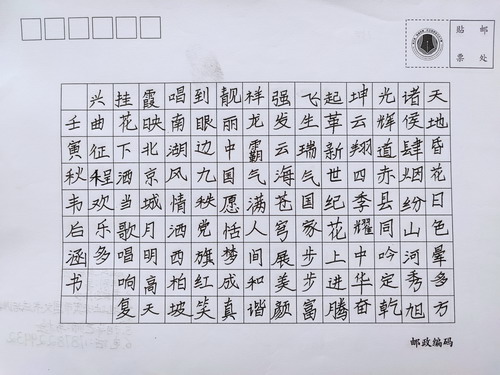 天地昏花日色晕多方
诸侯肆烟纷山河秀旭
光辉道赤县同吟定乾
坤云翔四季耀中华奋
起革新世纪花上进腾
飞生瑞气国家步步富
强发云海苍穹展美颜
祥龙霸气满人间和谐
靓丽中国愿恬梦成真
到眼边九秩党旗红笑
唱南湖风情洒西柏坡
霞映北京城月明高天
挂花下洒当歌唱响复
兴曲征程欢乐多
壬寅秋韦后涵书
贴邮
票处
邮政编码